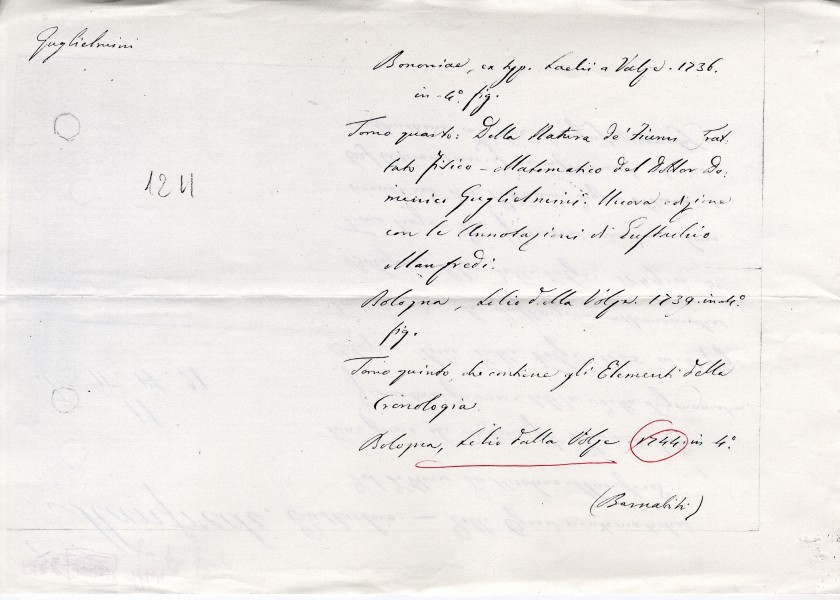 Guglielmini
Bononiae, ex typ. Laelii a Vulpe. 1736.
in-4° fig.
Tomo quarto: Della Natura de' Fiumi Trat
tato fisico-Matematico del Dottor Do.
menico Guglielmini. Nuova edizione
con le Annotazioni di Eustachio
Manfredi.
Bologna, Lelio della Volpe. 1739. in-4°
fig.
Tomo quinto, che contiene gli Elementi della
Cronologia.
Bologna, Lelio dalla Volpe 1744. in 4°.
(Barnabiti)